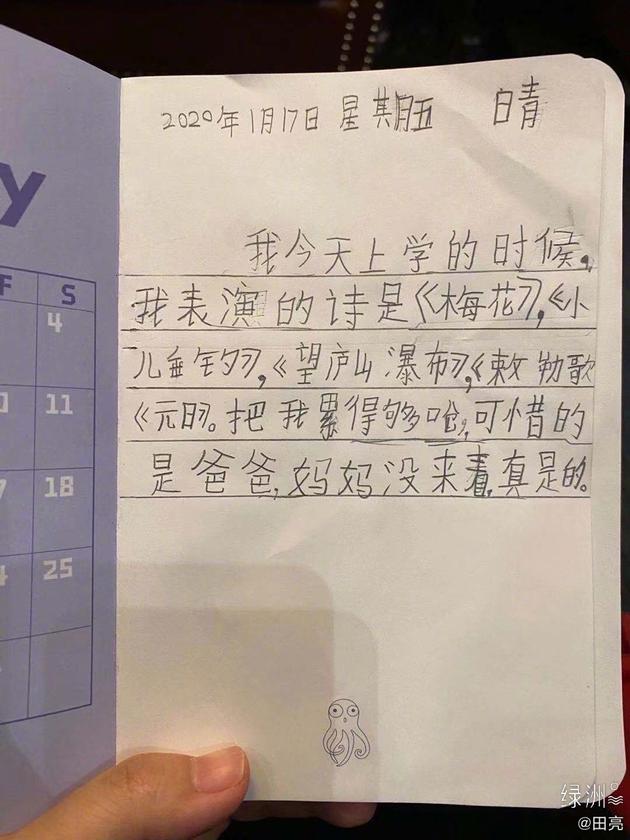 y
F S
4
11
18
25
2020年1月17日 星期五 晴
我今天上学的时候,
我表演的诗是《梅花》,《小
儿垂钓》,《望庐山瀑布》,《敕勒歌
《元日》。把我累得够呛,可惜的
是爸爸,妈妈没来看,真是的。
绿洲
@田亮